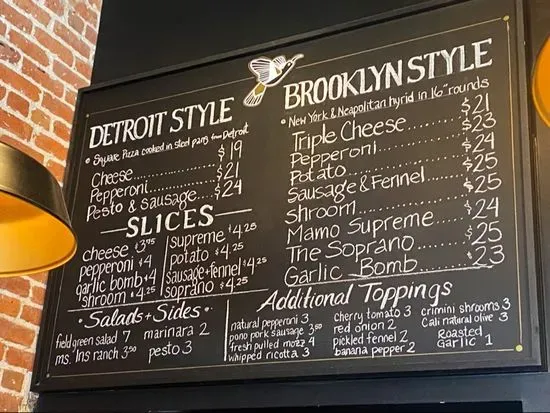 DETROIT STYLE
• Square Pizza cooked in steel pans from Detroit
Cheese.......... $19
Pepperoni....... $21
Pesto & Sausage.... $24
SLICES
cheese $3.75
pepperoni $4
garlic bomb $4
shroom $4.25
supreme $4.25
potato $4.25
sausage+fennel $4.25
soprano $4.25
• Salads + Sides •
field green salad 7
ms. Ins ranch 3.50
marinara 2
pesto 3
BROOKLYN STYLE
• New York & Neapolitan hyrid in 16" rounds
Triple Cheese.......... $21
Pepperoni.......... $23
Potato.......... $24
Sausage & Fennel....... $25
Shroom.......... $25
Mamo Supreme....... $24
The Soprano....... $25
Garlic Bomb....... $23
Additional Toppings
natural pepperoni 3
pono pork sausage 3.50
fresh pulled mozz 4
whipped ricotta 3
cherry tomato 3
red onion 2
pickled fennel 2
banana pepper 2
crimini shrooms 3
Cali natural olive 3
Roasted
Garlic 1